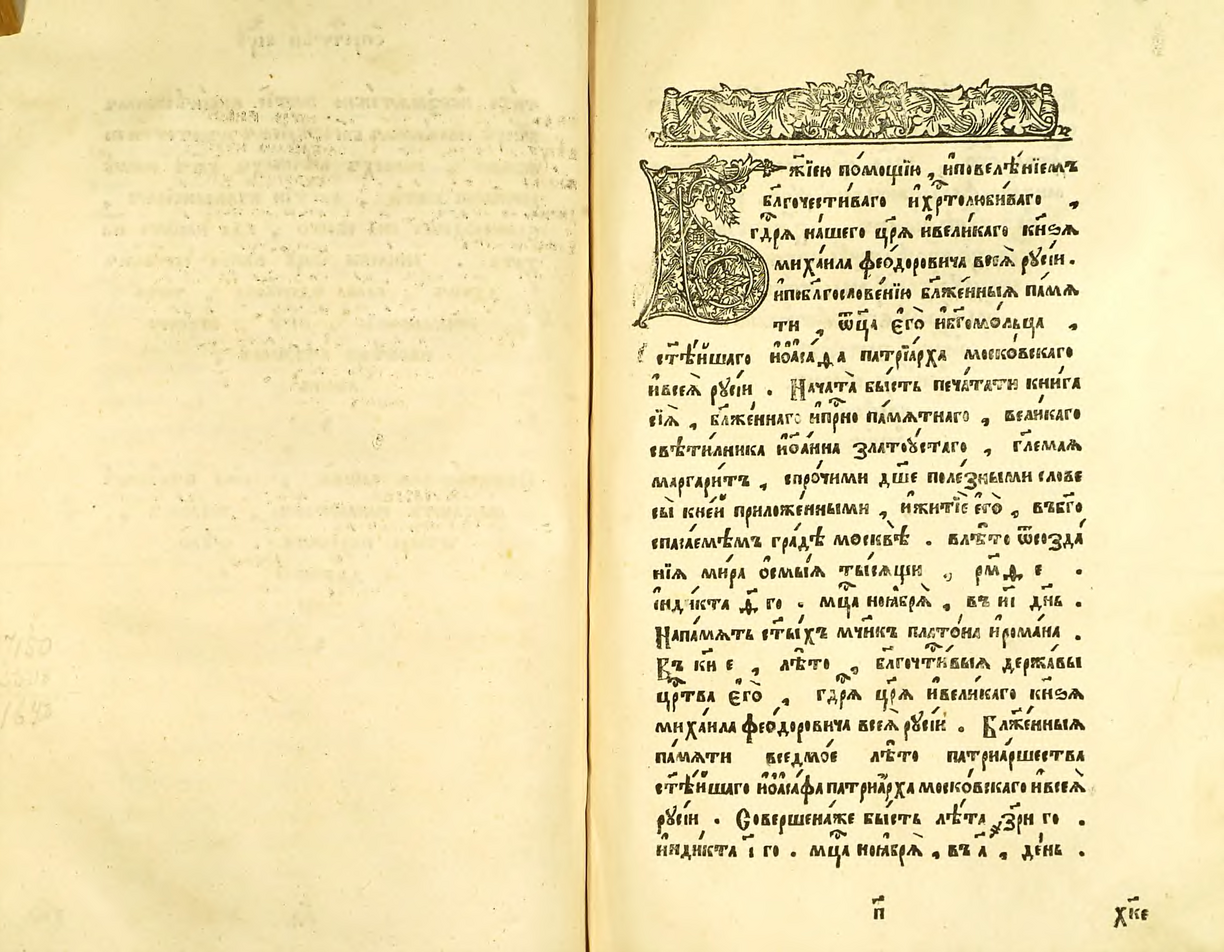 Бж҃їею по́мощїю , и҆повелѣ́нїемъ
бл҃гочести́ваго и҆хрⷭ҇толюби́ваго ,
гдⷭ҇рѧ на́шего цр҃ѧ и҆вели́каго кн҃зѧ
миха́ила фео́доровича всеѧ̀ рꙋсі́и .
и҆побл҃гослове́нїю бл҃же́нныѧ па́мѧ
ти , ѿц҃а є҆гѡ̀ и҆бг҃омо́льца ,
ст҃ѣ́йшаго і҆ѡаса́фа патрїа́рха моско́вскаго
и҆всеѧ̀ рꙋсі́и . Нача́та бы́сть печа́тати кни́га
сїѧ̀ , бл҃же́ннаго и҆прⷭ҇но па́мѧтнаго , вели́каго
свѣти́лника і҆ѡа́нна златоꙋ́стаго , гл҃емаѧ
маргари́тъ , спро́чими дш҃еполе́зными словесы̀
кне́й приложе́нными , и҆житїѐ є҆гѡ̀ , въбг҃о
спаса́емѣмъ гра́дѣ москвѣ̀ . влѣ́то ѿсозда́
нїѧ ми́ра ѻ҆смы́ѧ ты́сѧщи , рм҃ѳ е .
і҆нди́кта д҃ го . мцⷭ҇а ноѧ́брѧ , въ и҃і дн҃ь .
Напа́мѧть ст҃ы́хъ мч҃нкъ плато́на и҆рома́на .
Въ к҃и е , лѣ́то , бл҃гочⷭ҇ти́выѧ держа́вы
црⷭ҇тва є҆гѡ̀ , гдⷭ҇рѧ цр҃ѧ и҆вели́каго кн҃зѧ
миха́ила фео́доровича всеѧ̀ рꙋсі́и . Бл҃же́нныѧ
па́мѧти вседмо́е лѣ́то патриа́ршества
ст҃ѣ́йшаго і҆ѡаса́фа патриа́рха моско́вскаго и҆всеѧ̀
рꙋсі́и . Соверше́наже бы́сть лѣ́та ҂зрн҃ го .
и҆нди́кта і҃ го . мцⷭ҇а ноѧ́брѧ , въ а҃ , де́нь .
п҃
хк҃е